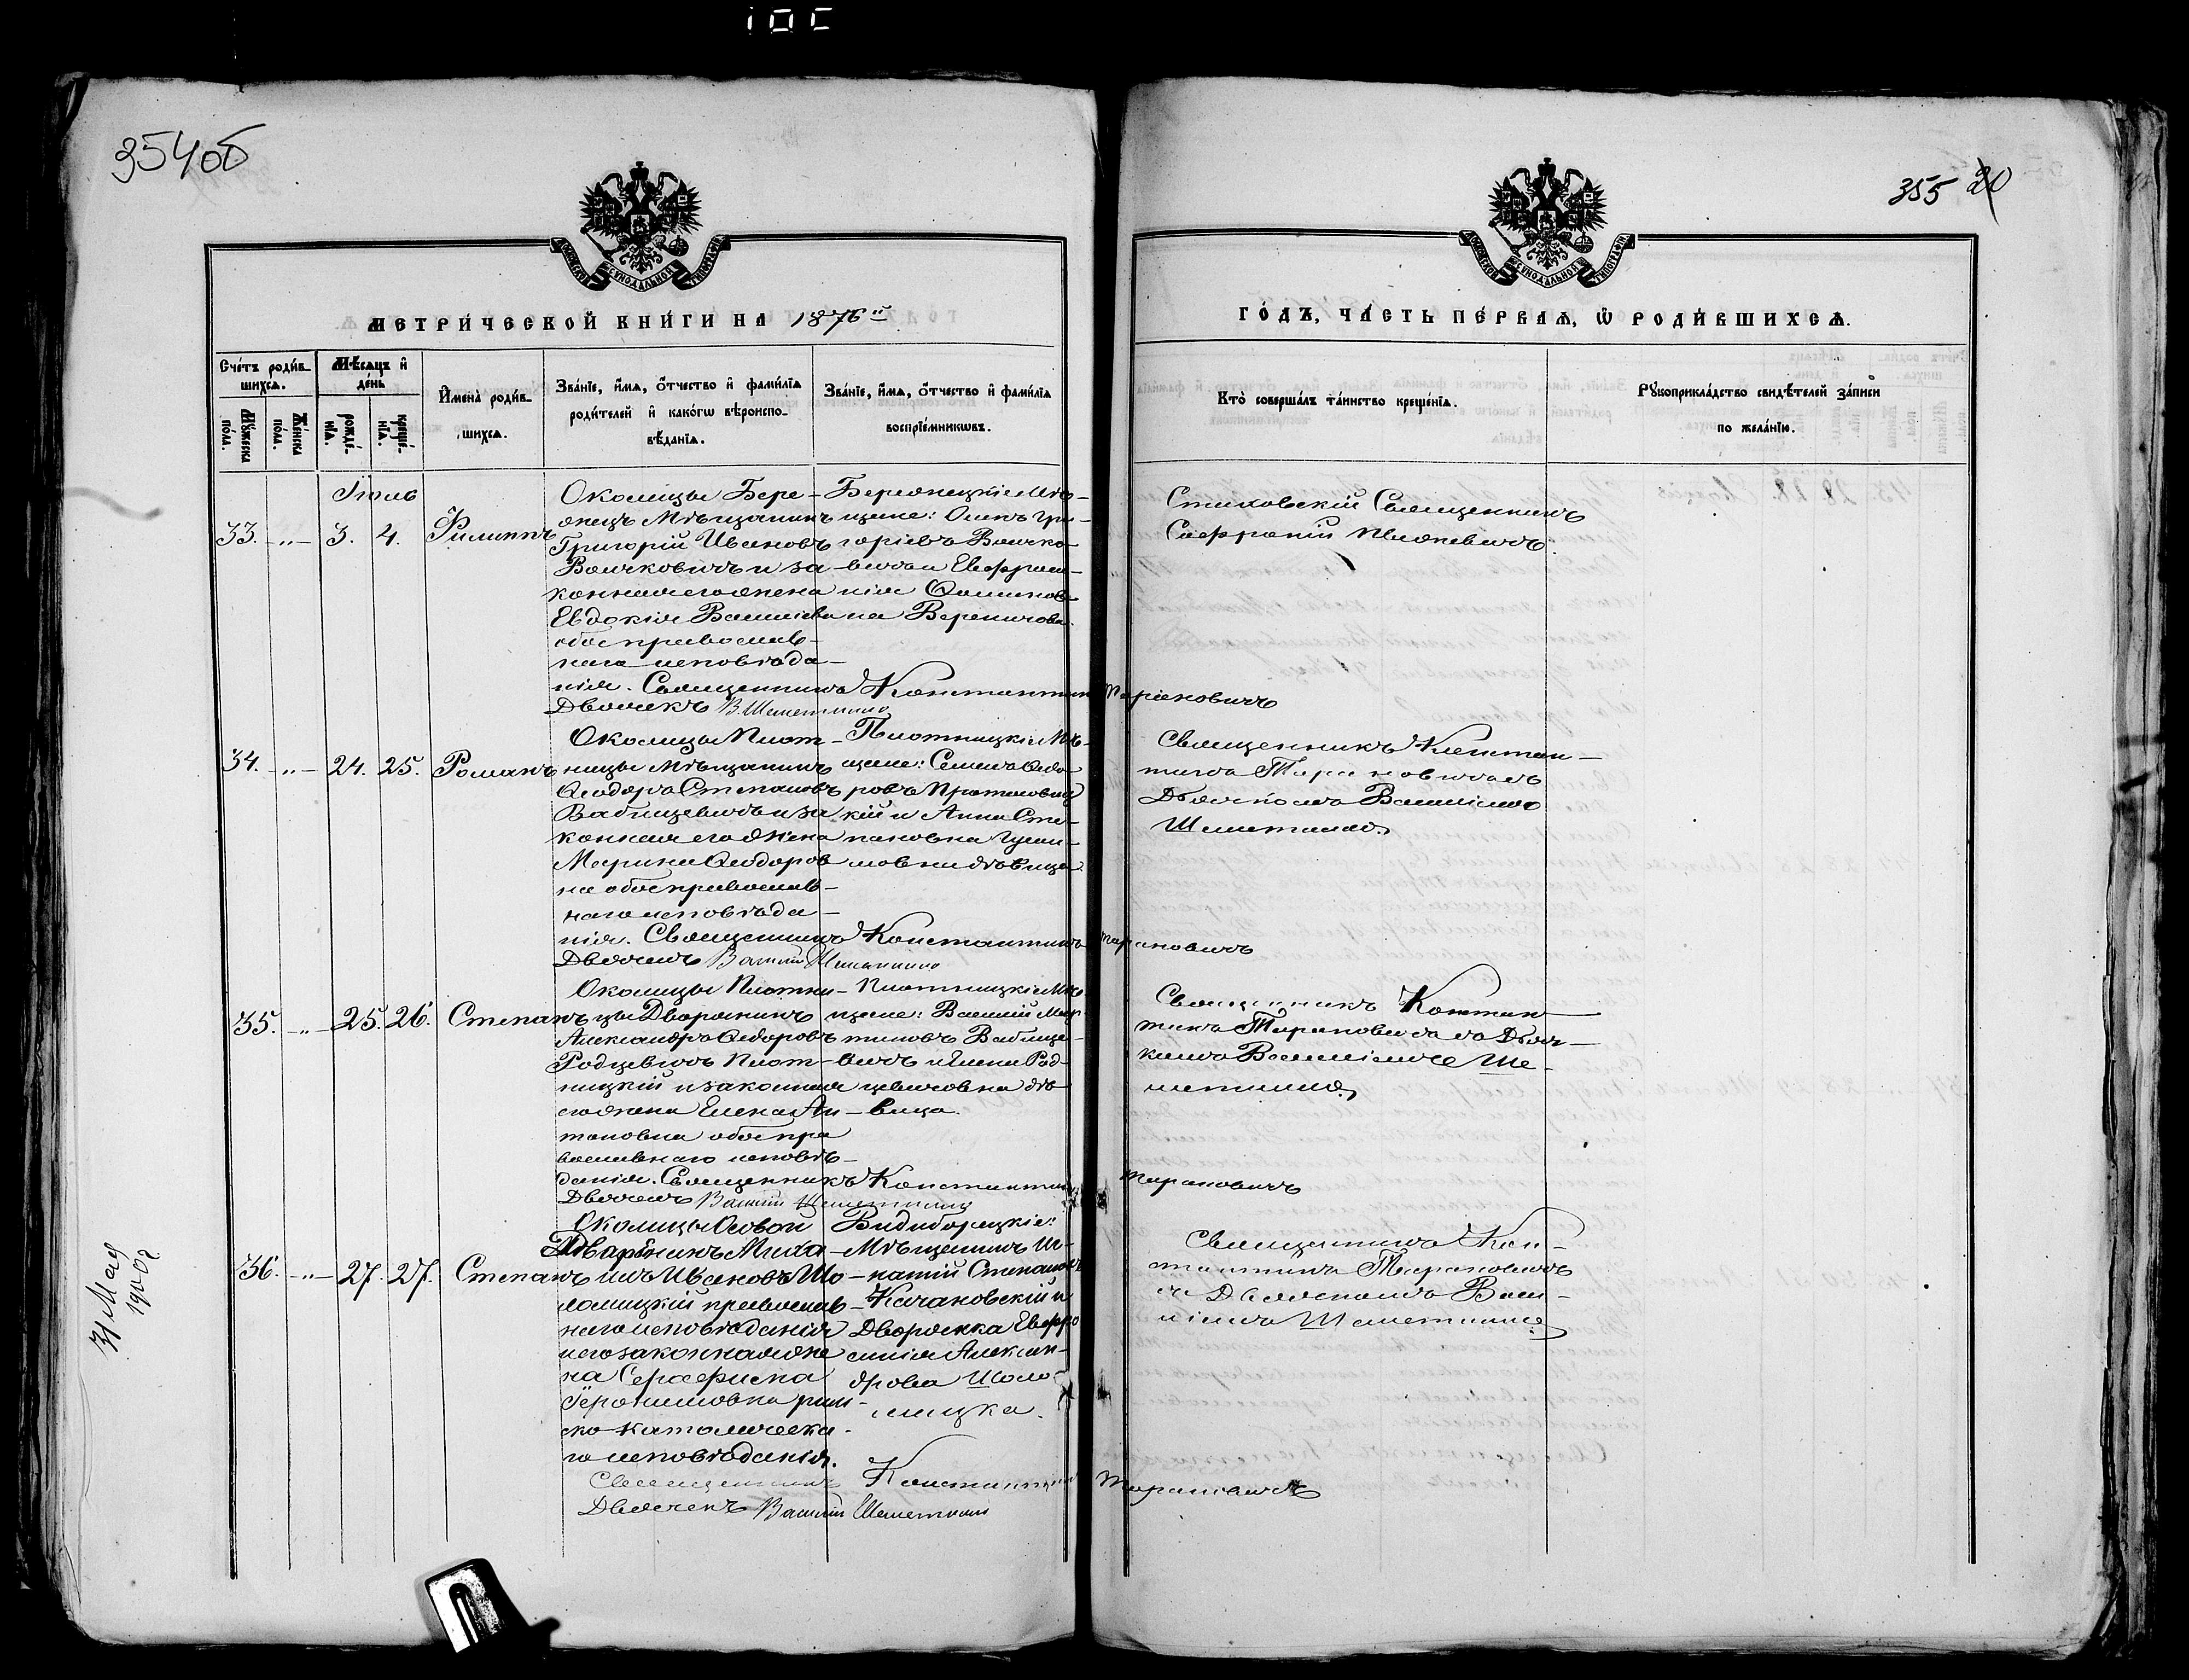 354об
355 20
МЕТРИ́ЧЕСКОЙ КНИ́ГИ НА 1876й
ГО́ДЪ, ЧА́СТЬ ПЕ́РВАѦ, Ѡ҆ РОДИ́ВШИХСѦ.
Сче́тъ роди́в-
шихсѧ.
Мꙋ́жеска по́ла.
Же́нска по́ла.
Мѣ́сѧцъ и҆ де́нь
рожде́-
нїѧ.
креще́-
нїѧ.
И҆мена̀ роди́в-
шихсѧ.
Зва́нїе, и҆́мѧ, ѻ҆́тчество и҆ фами́лїѧ
роди́телей и҆ како́гѡ вѣроиспо-
вѣ́данїѧ.
Зва́нїе, и҆́мѧ, ѻ҆́тчество и҆ фами́лїѧ
воспрїе́мникѡвъ.
Кто̀ соверша́лъ та́инство креще́нїѧ.
Рꙋкоприкла́дство свидѣ́телей за́писи
по жела́нїю.
Іюль
33. -„- 3. 4. Филиппъ
Околицы Бере-
жецъ Мѣщанинъ
Григорій Ивановъ
Вечковичъ и за-
конная его жена
Евдокія Васильева
обое православ-
наго исповѣда-
нія. Священникъ Константинъ Тарановичъ
Дьячекъ В. Шеметилло
Бережецкіе Мѣ-
щане:
Стаховскій Священникъ
Софроній
34. -„- 24. 25. Романъ
Околицы Плот-
ницы Мѣщанинъ
Ѳеодоръ Степановъ
Вабищевичъ и за
конная его жена
Марина Ѳеодоров
на обое православ-
наго исповѣда-
нія. Священникъ Константинъ Тарановичъ
Дьячекъ Василій Шеметилло
Плотницкіе Мѣ-
щане: Семенъ Ѳедо
ровъ Протасовиц
кій и Анна Сте-
пановна
дѣвица
Священникъ Констан-
тинъ Тарановичъ съ
Дьячкомъ Василіемъ
Шеметилло
35. -„- 25. 26. Степанъ
Околицы Плотни-
цы Дворянинъ
Александръ Ѳедоровъ
Родцевичъ Плот-
ницкій и законная
его жена Елена Ан-
тоновна обое пра
вославнаго исповѣ-
данія. Священникъ Константинъ Тарановичъ
Дьячекъ Василій Шеметилло
Плотницкіе Мѣ-
щане: Василій Мар-
тиновъ Вабище-
вичъ и Елена Род-
цевичовна дѣ-
вица.
Священникъ Констан-
тинъ Тарановичъ съ Дьяч-
комъ Василіемъ Ше-
метилло
36. -„- 27. 27. Степанъ
Околицы Осовой
Дварёнинъ Миха-
илъ Ивановъ Шо-
ломицкій православ-
наго исповѣданія
и его законная же
на Серафима
Іеронимовна рим-
ско католическа-
го исповѣданія.
Священникъ Константинъ Тарановичъ
Дьячекъ Василій Шеметилло
Видиборецкіе:
Мѣщанинъ Иг-
натій Степановъ
Качановскій и
Дворянка Евфро
синія Алексан-
дрова Шоло-
мицка.
Священникъ Кон-
стантинъ Тарановичъ
съ Дьячкомъ Васи-
ліемъ Шеметилло
31 Мая
1902